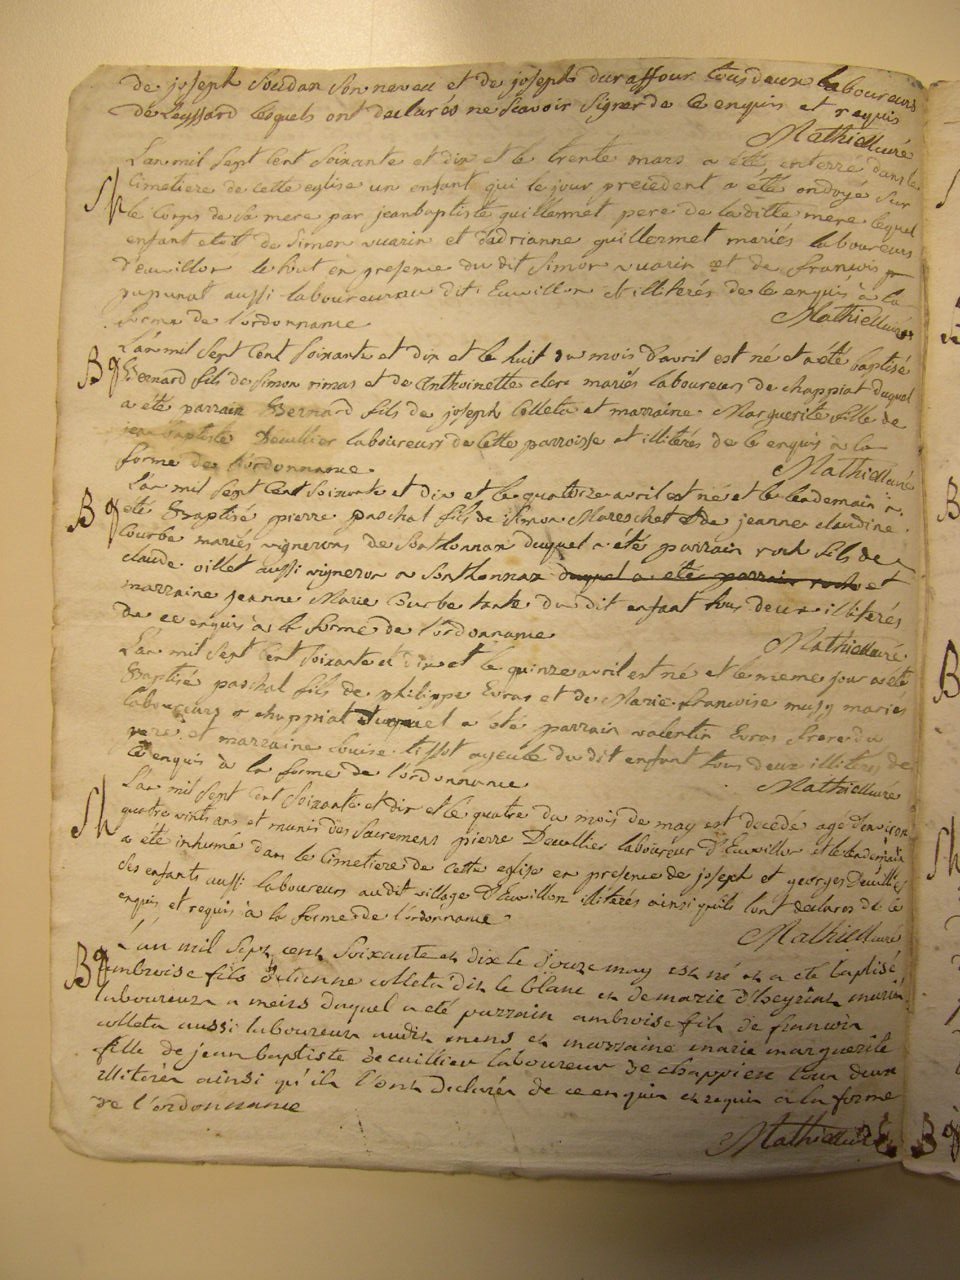 de joseph Soudan son neveu et de joseph duraffour tous deux laboureurs
de Leyssard lesquels ont declarés ne scavoir signer de ce enquis et requis
Mathieu curé
L'an mil sept cent soixante et dix et le trente mars a été enterré dans le
Sp cimetiere de cette eglise un enfant qui le jour precedent a été ondoyé sur
le corps de sa mere par jeanbaptiste guillermet pere de laditte mere lequel
enfant etoit de Simon vuarin et d'adrianne guillermet mariés laboureurs
d'euvillon le tout en presence du dit Simon vuarin et de francois
papunat aussi laboureur au dit Euvillon illiterés de ce enquis à la
forme de l'ordonnance Mathieu curé
L'an mil sept cent soixante et dix et le huit du mois d'avril est né et a été baptisé
Bq Bernard fils de Simon rimas et de Anthoinette clerc mariés laboureurs de chappiat duquel
a été parrain Bernard fils de joseph Colleta et marraine Marguerite fille de
jean baptiste Deuillier laboureurs de cette parroisse et illiterés de ce enquis à la
forme de l'ordonnance Mathieu curé
L'an mil sept cent soixante et dix et le quatorze avril est né et le lendemain a
Bq été Baptisé pierre paschal fils de Simon Mareschet et de jeanne claudine
Courbe mariés vignerons de Sonthonnax duquel a été parrain roch fils de
claude villet aussi vigneron a Sonthonnax duquel a eté parrain roch et
marraine jeanne Marie Courbe tante du dit enfant tous deux illiterés
de ce enquis à la forme de l'ordonnance Mathieu curé
L'an mil sept cent soixante et dix et le quinze avril est né et le meme jour a eté
Baptisé paschal fils de philippe Evras et de Marie francoise mussy mariés
laboureurs a chappiat duquel a été parrain valentin Evras frere du
pere et marraine louise tissot ayeule du dit enfant tous deux illiterés de
ce enquis à la forme de l'ordonnance Mathieu curé
L'an mil sept cent soixante et dix et le quatre du mois de may est decedé agé d'environ
Sp quatre vints ans et munis des sacremens pierre Deuillier laboureur d'Euvillon et le lendemain
a été inhumé dans le cimetiere de cette eglise en presence de joseph et georges Deuillier
ses enfants aussi laboureurs au dit village d'Euvillon illiterés ainsi qu'ils l'ont declarés de ce
enquis et requis à la forme de l'ordonnance Mathieu curé
L'an mil sept cent soixante et dix le douze may est né et a eté baptisé
Bq ambroise fils d'etienne colleta dit le blanc et de marie d'heyriat mariés
laboureurs a mens duquel a eté parrain ambroise fils de francois
colleta aussi laboureur audit mens et marraine marie marguerite
fille de jean baptiste decuillieu laboureur de chappien tous deux
illiterés ainsi qu'ils l'ont declarés de ce enquis et requis à la forme
de l'ordonnance
Mathieu curé